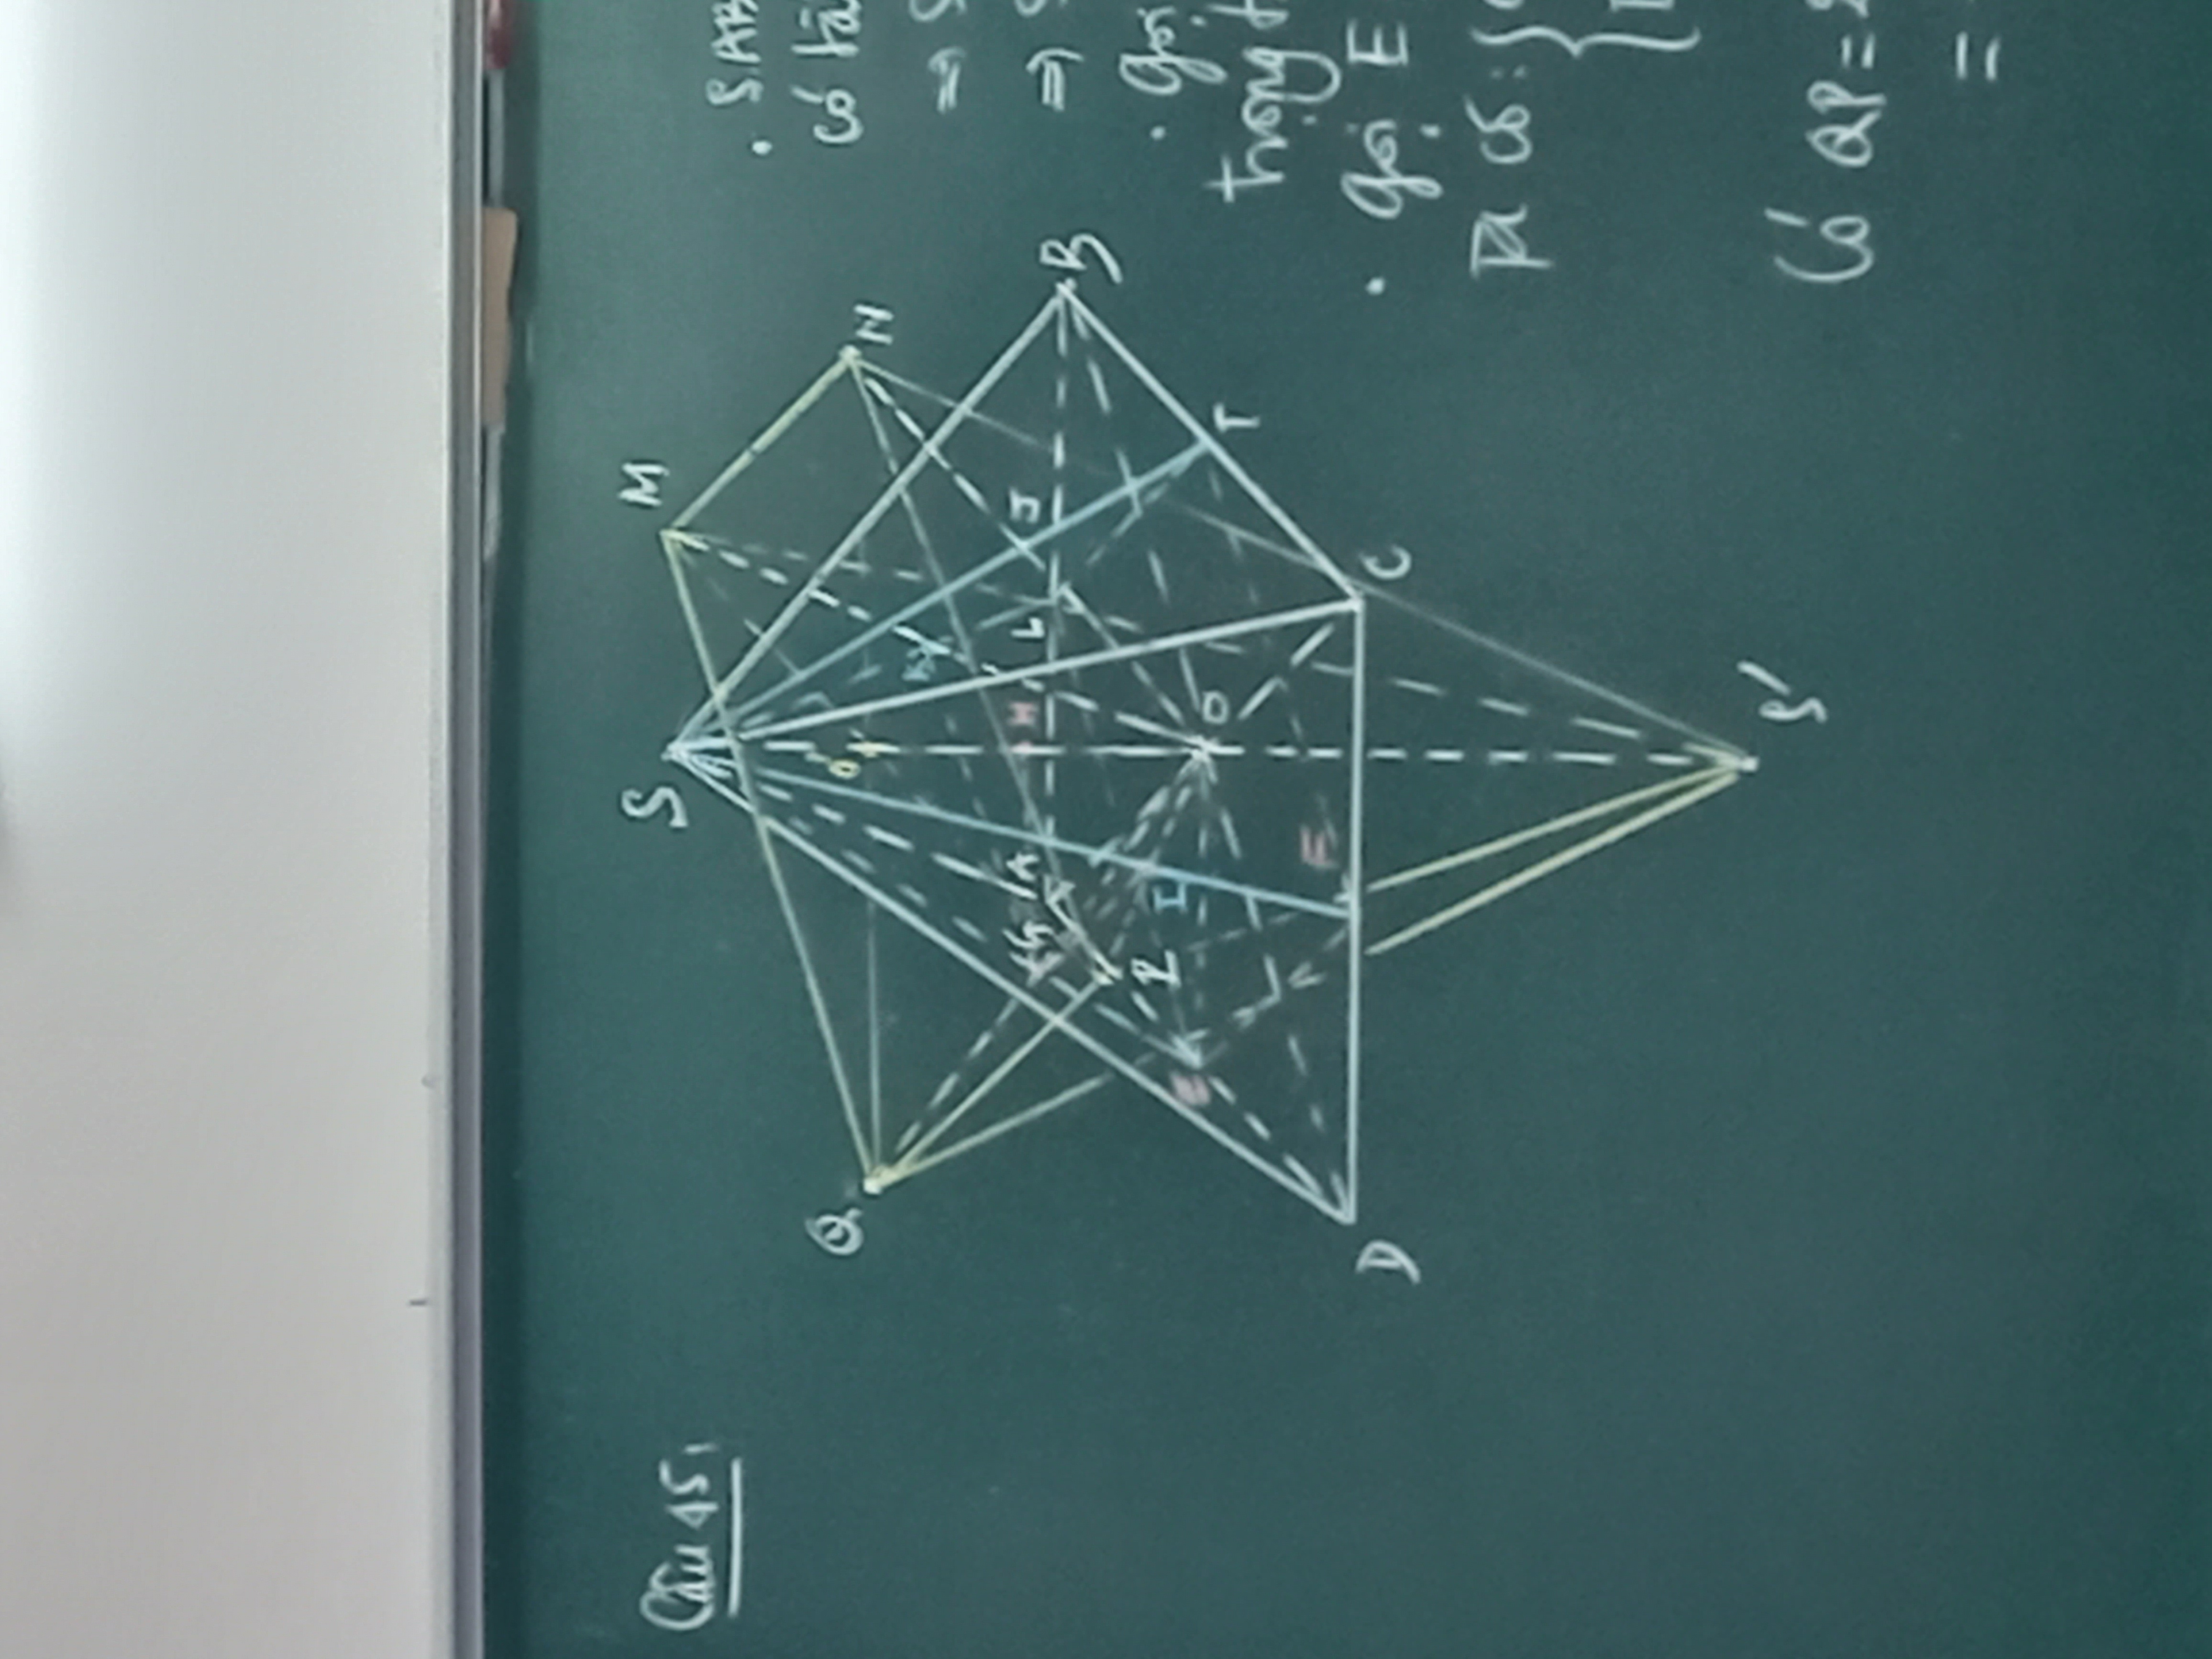 Câu 45:
S
M
Q
O'
N
K
G
A
H
L
J
B
P
E
I
O
T
F
D
C
S'
. S.AB
có tâ
=>
=>
. Gọi
trọng t
. Gọi E
Ta có:
Có QP =
=